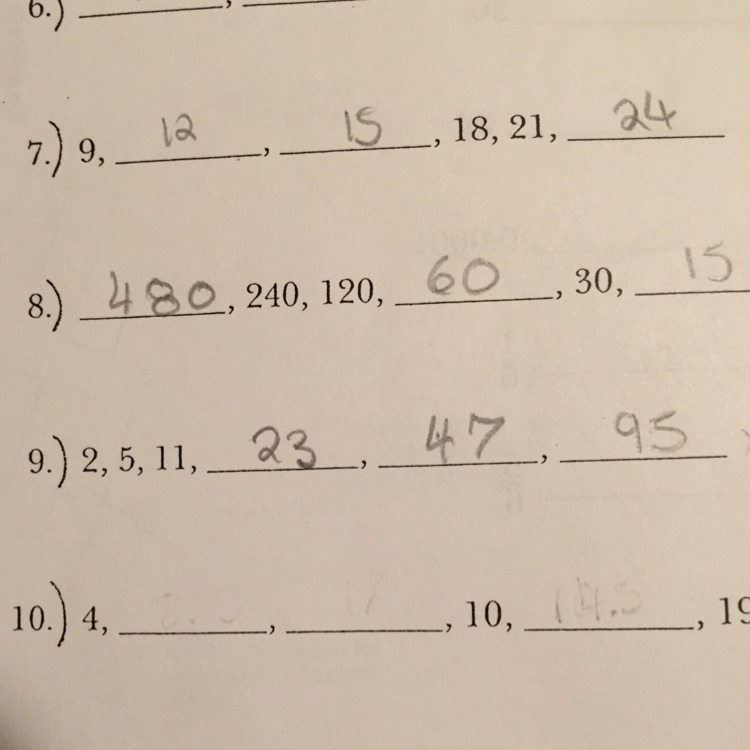 6.) ____, ____
7.) 9, 12, 15, 18, 21, 24
8.) 480, 240, 120, 60, 30, 15
9.) 2, 5, 11, 23, 47, 95
10.) 4, ____, ____, 10, 14.5, 19